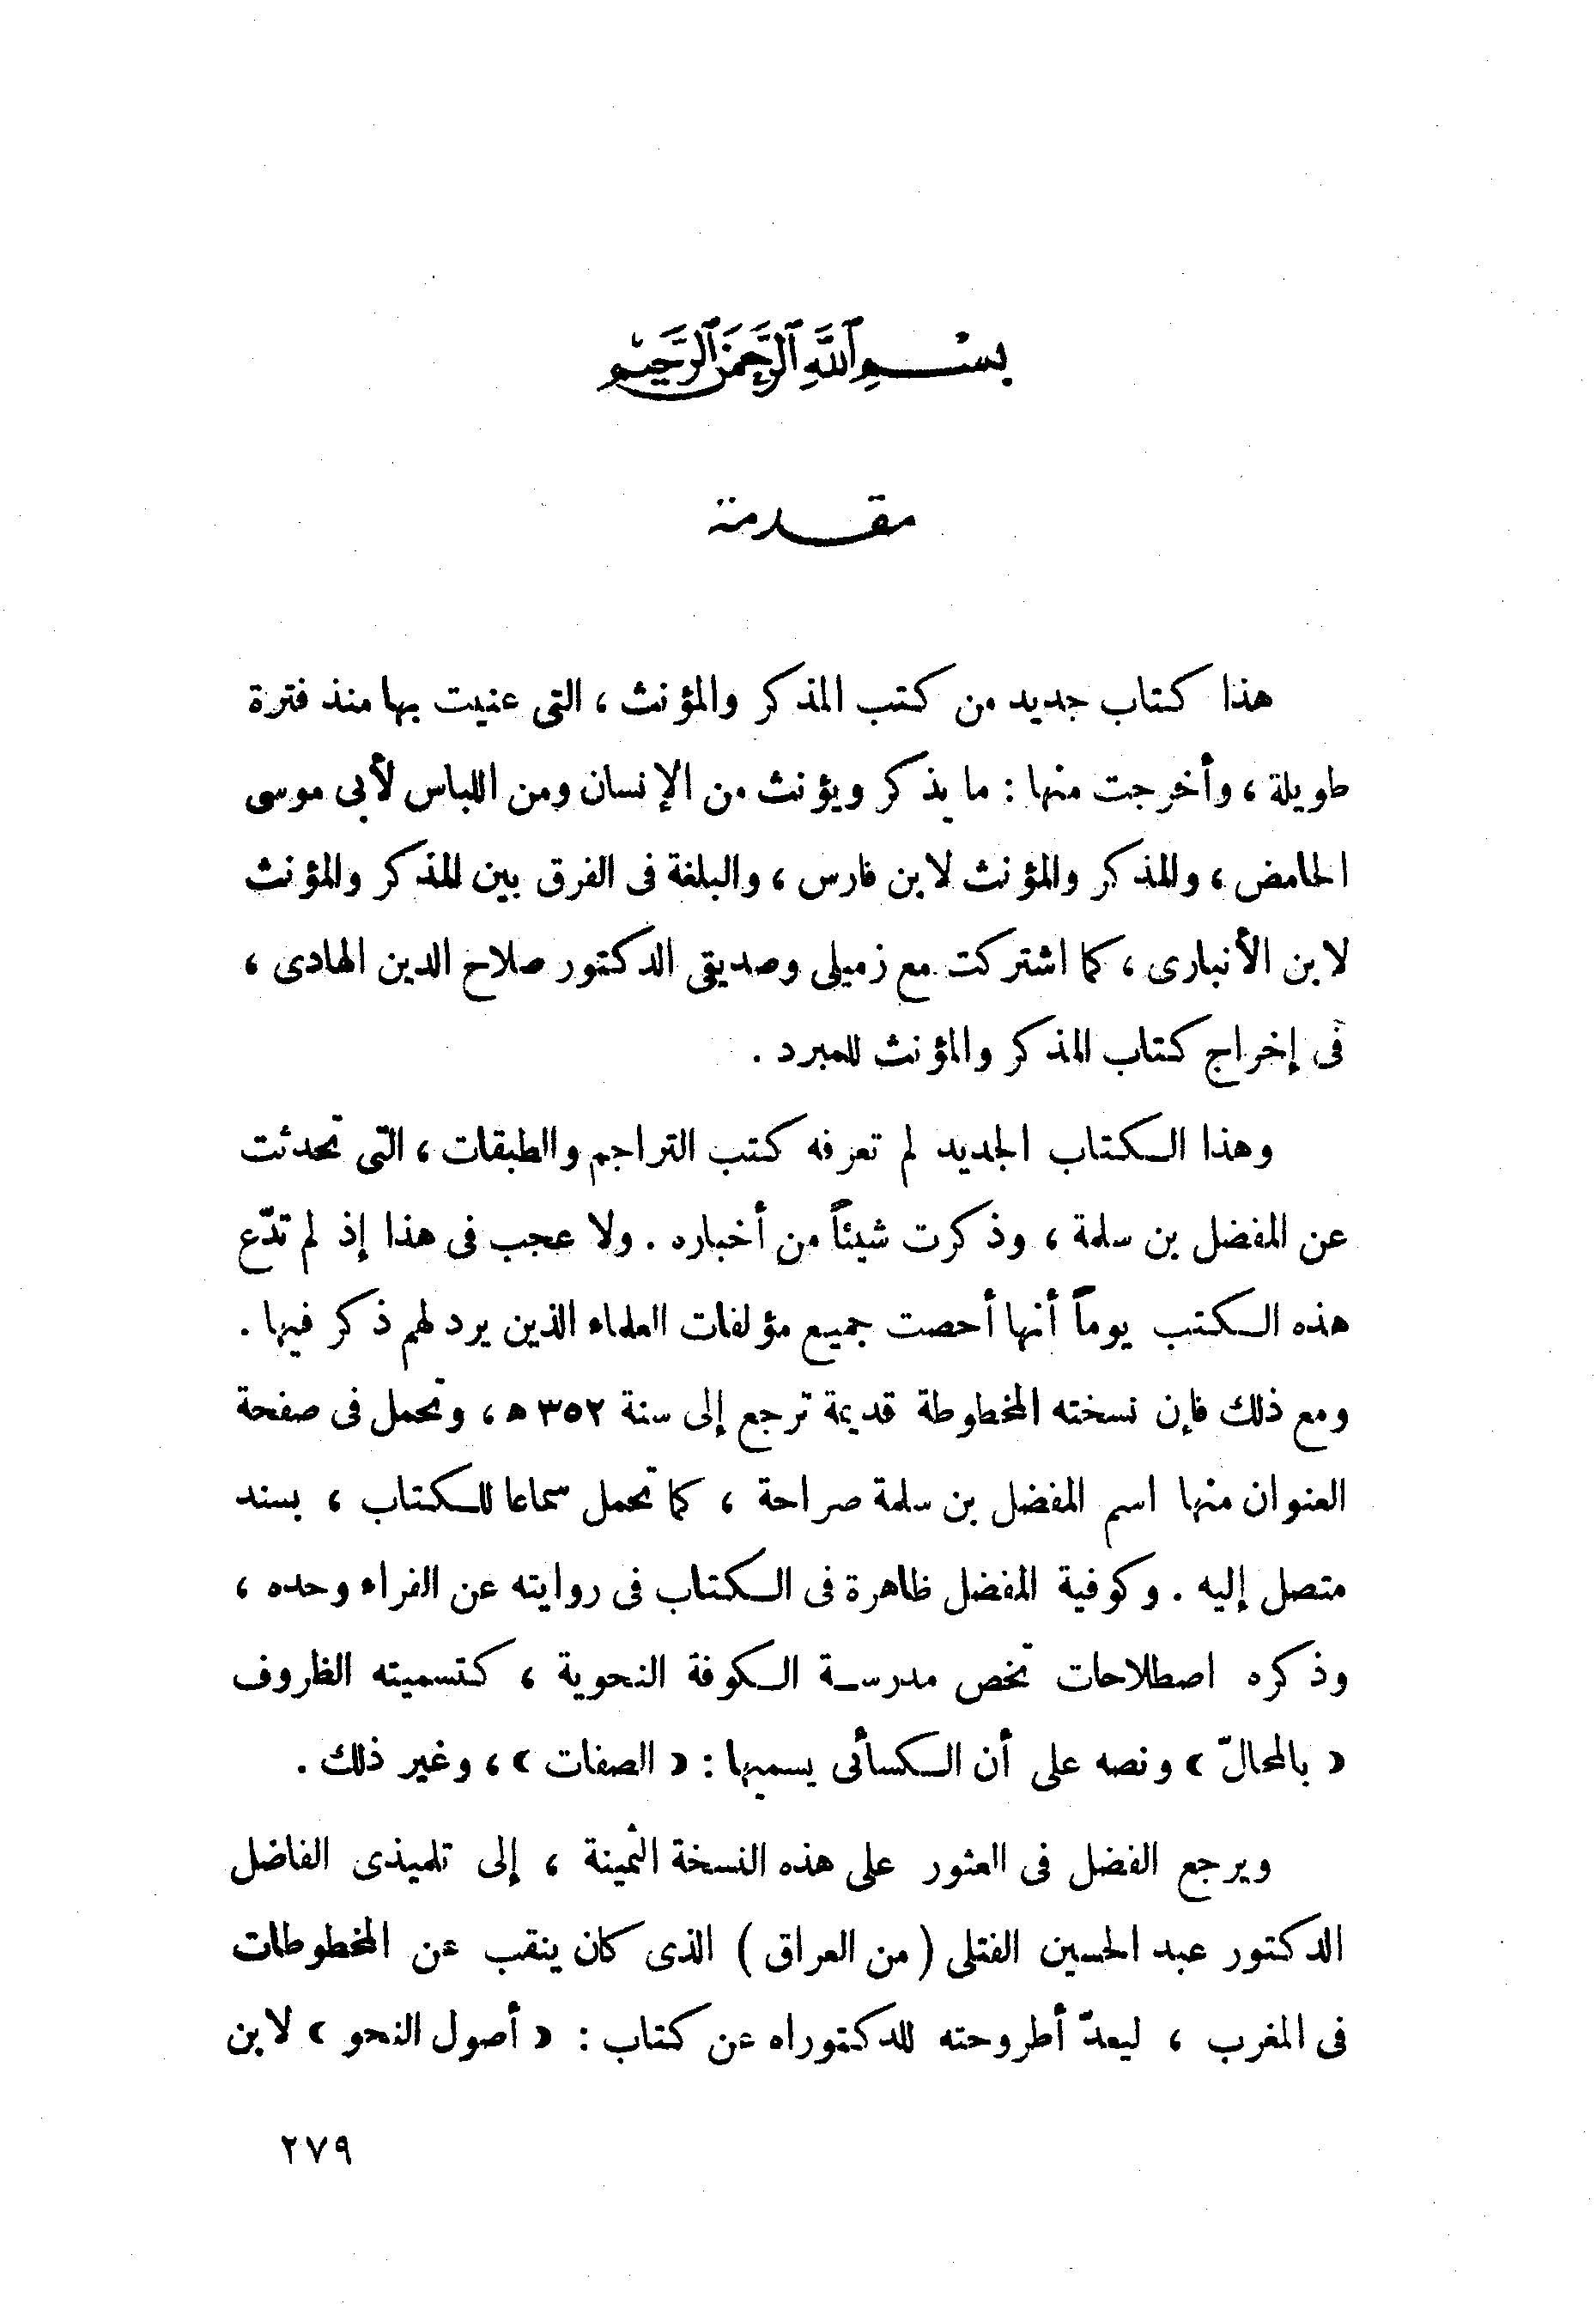 بِسْمِ ٱللَّهِ ٱلرَّحْمَٰنِ ٱلرَّحِيمِ
مقدمة
هذا كتاب جديد من كتب المذكر والمؤنث ، التى عنيت بها منذ فترة
طويلة ، وأخرجت منها : ما يذكر ويؤنث من الإنسان ومن اللباس لأبى موسى
الحامض ، والمذكر والمؤنث لابن فارس ، والبلغة فى الفرق بين المذكر والمؤنث
لابن الأنبارى ، كما اشتركت مع زميلى وصديقى الدكتور صلاح الدين الهادى ،
فى إخراج كتاب المذكر والمؤنث للمبرد .
وهذا الكتاب الجديد لم تعرفه كتب التراجم والطبقات ، التى تحدثت
عن المفضل بن سلمة ، وذكرت شيئاً من أخباره . ولا عجب فى هذا إذ لم تدّع
هذه الكتب يوماً أنها أحصت جميع مؤلفات العلماء الذين يرد لهم ذكر فيها .
ومع ذلك فإن نسخته المخطوطة قديمة ترجع إلى سنة ٣٥٢ ه ، وتحمل فى صفحة
العنوان منها اسم المفضل بن سلمة صراحة ، كما تحمل سماعا للكتاب ، بسند
متصل إليه . وكوفية المفضل ظاهرة فى الكتاب فى روايته عن الفراء وحده ،
وذكره اصطلاحات تخص مدرسة الكوفة النحوية ، كتسميته الظروف
« بالمحالّ » ونصه على أن الكسائى يسميها : « الصفات » ، وغير ذلك .
ويرجع الفضل فى العثور على هذه النسخة الثمينة ، إلى تلميذى الفاضل
الدكتور عبد الحسين الفتلى ( من العراق ) الذى كان ينقب عن المخطوطات
فى المغرب ، ليعدّ أطروحته للدكتوراه عن كتاب : « أصول النحو » لابن
٢٧٩